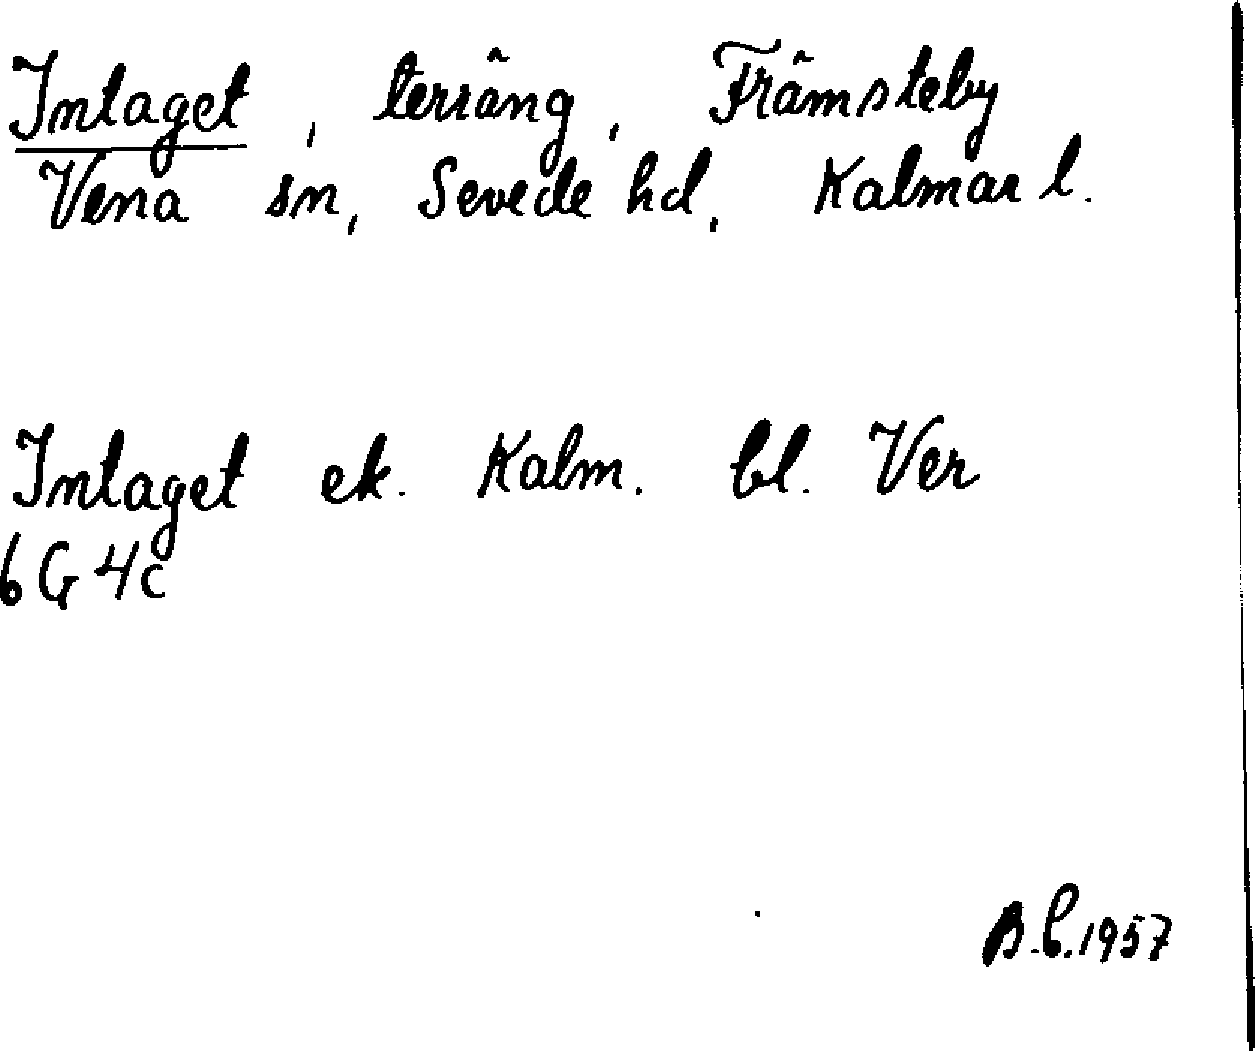 Intaget, terräng, Främsteby
Vena sn, Sevede hd, Kalmar l.
Intaget ek. Kalm. bl. Ver
6G4c
B.C.1957